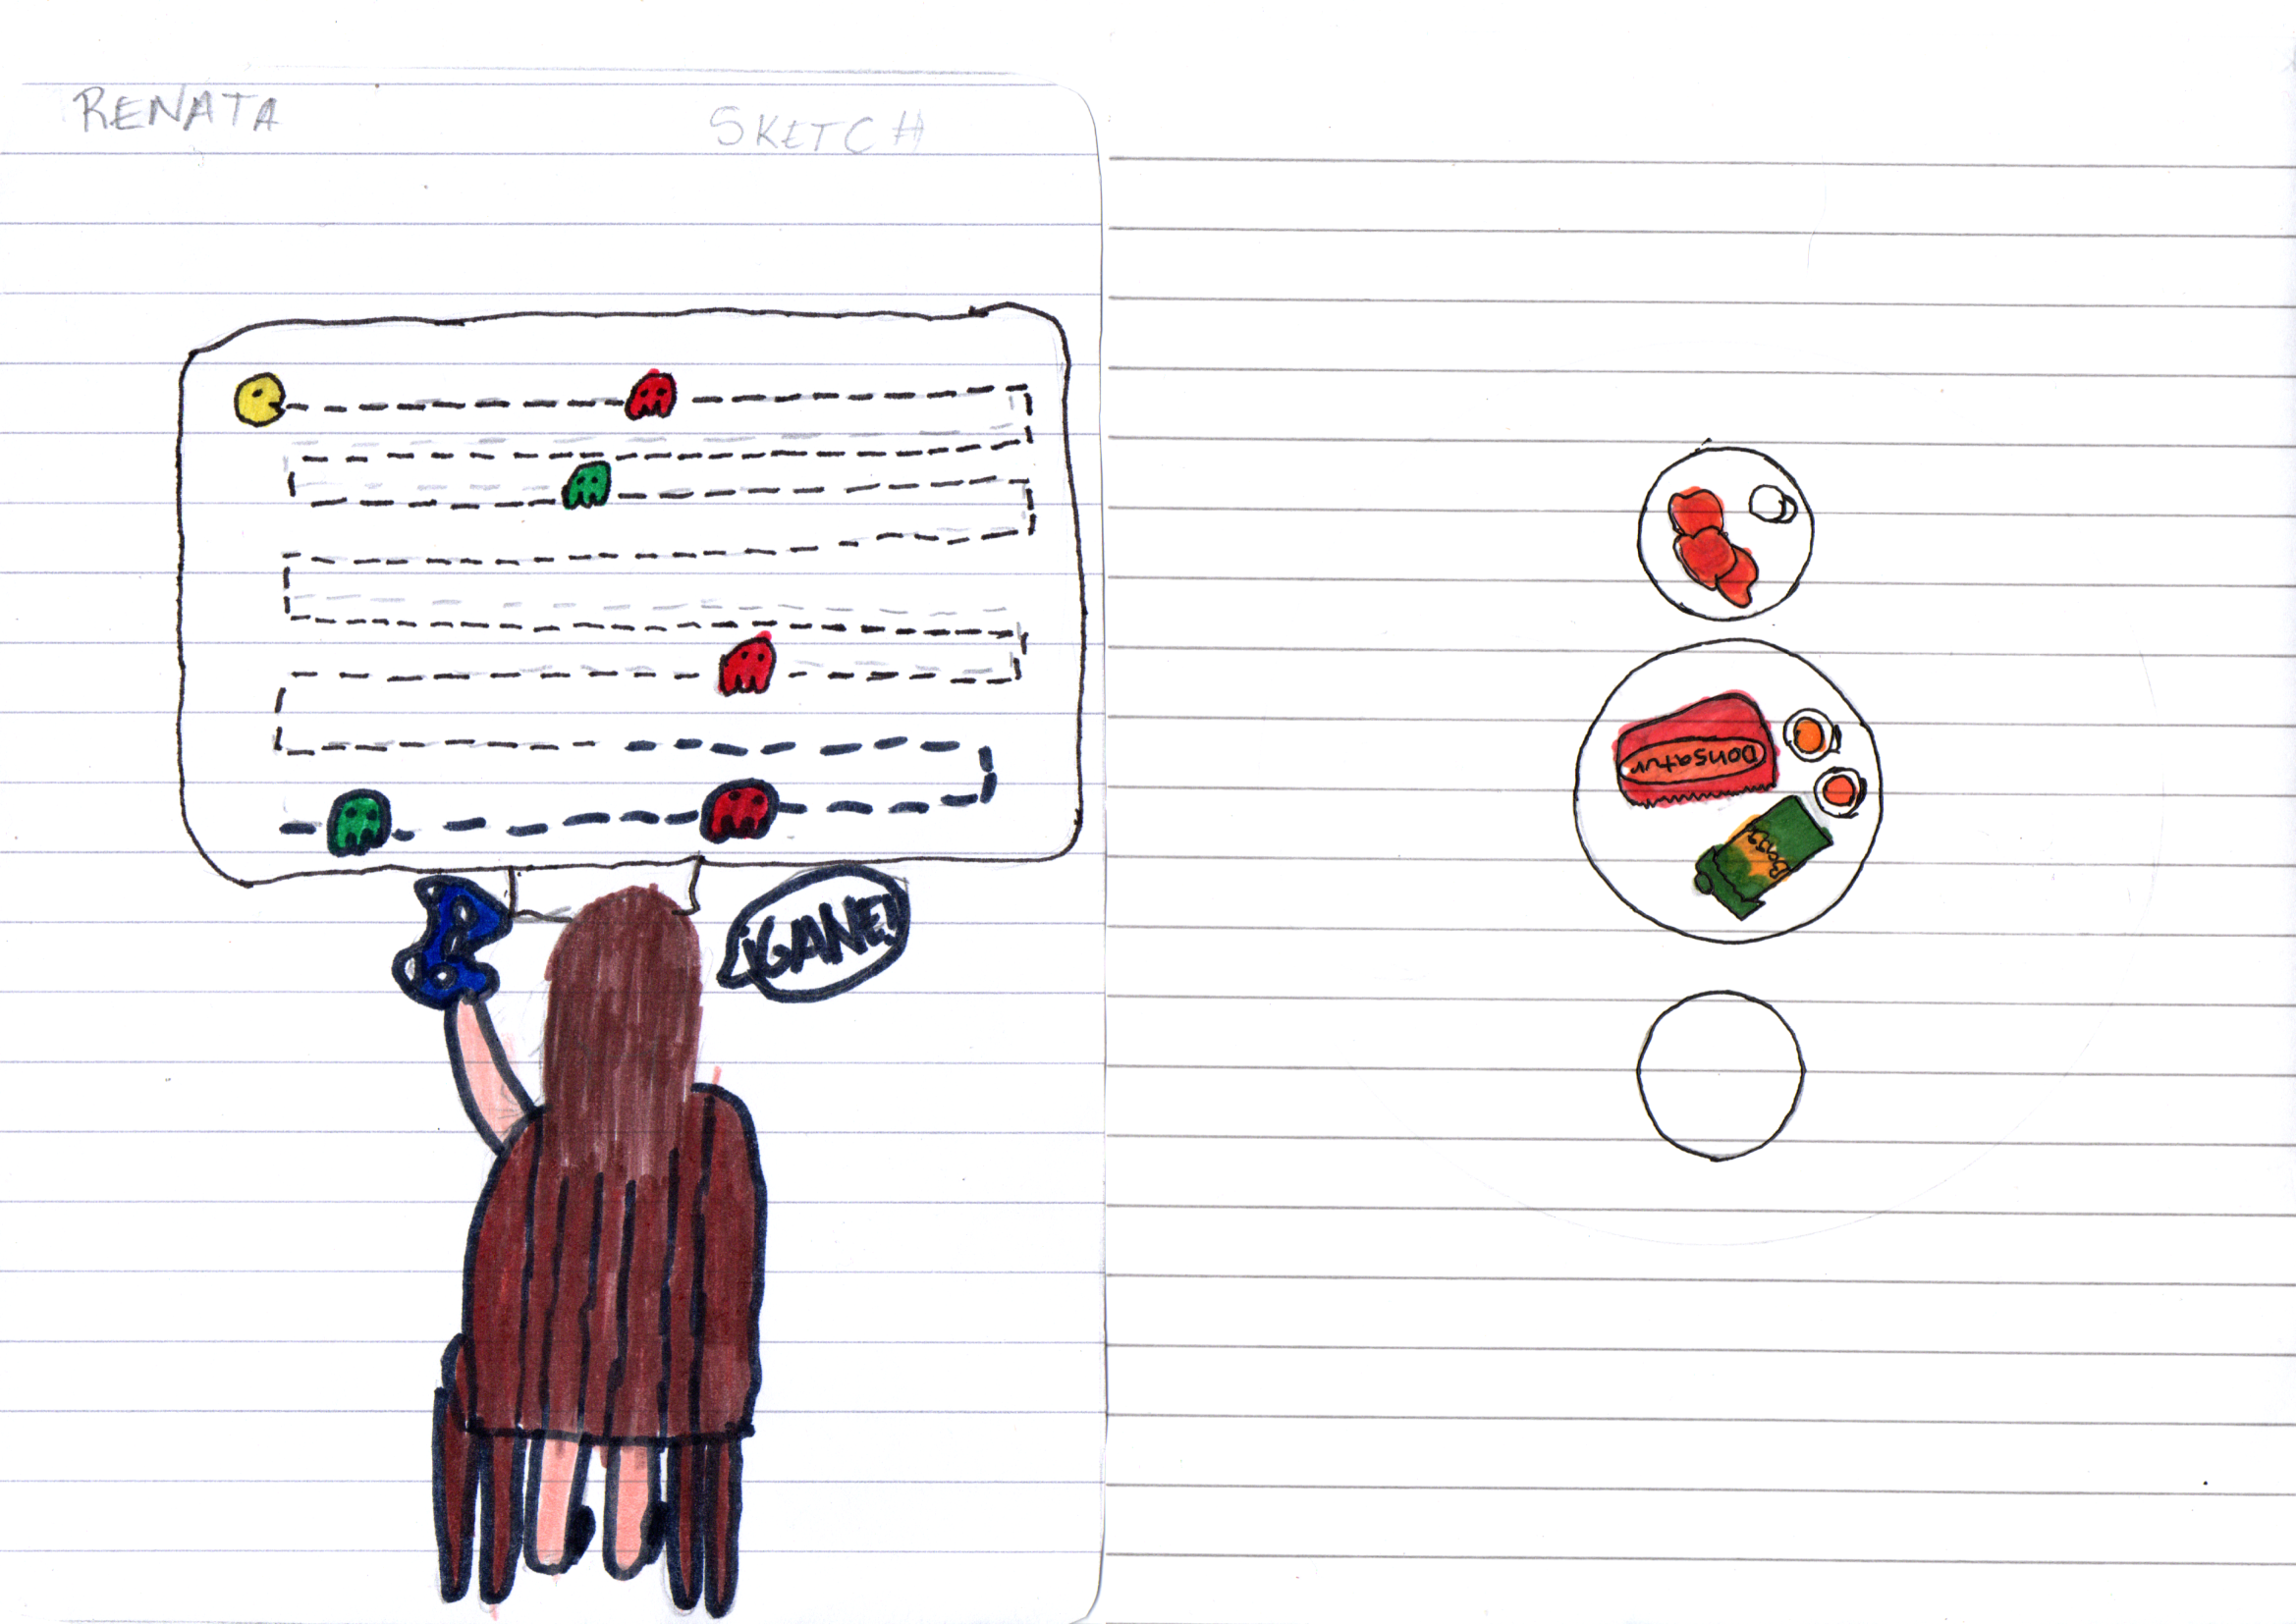 RENATA
SKETCH
¡GANE!
Donsatur